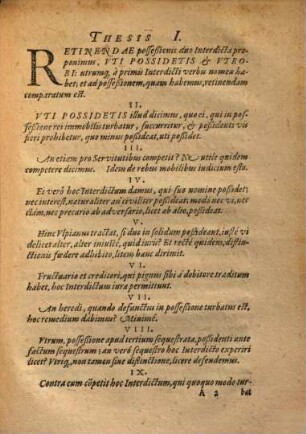 THESIS I.
RETINENDAE possessionis duo Interdicta pro-
ponimus, VTI POSSIDETIS & VTRO-
BI: utrumq; à primis Interdicti verbis nomen ha-
bet: et ad possessionem, quam habemus, retinendam
comparatum est.
II.
VTI POSSIDETIS illud dicimus, quo ei, qui in pos-
sessione rei immobilis turbatur, succurritur, & possidenti vis
fieri prohibetur, quo minus possideat, uti possidet.
III.
An etiam pro Servitutibus competit? Ne utile quidem
competere dicimus. Idem de rebus mobilibus iudicium esto.
IV.
Et verò hoc Interdictum damus, qui suo nomine possidet:
nec interest, naturaliter an civiliter possideat: modo nec vi, nec
clàm, nec precario ab adversario, licet ab alio, possideat.
V.
Hinc Vlpianus tractat, si duo in solidum possideant, iustè vi-
delicet alter, alter iniustè, quid iuris? Et rectè quidem, distin-
ctionis foedere adhibito, litem hanc dirimit.
VI.
Fructuario et creditori, qui pignus sibi à debitore traditum
habet, hoc Interdictum iura permittunt.
VII.
An heredi, quando defunctus in possessione turbatus est,
hoc remedium dabimus? Minimè.
VIII.
Vtrum, possessione apud tertium sequestrata, possidenti ante
factum sequestrum: an verò sequestro hoc Interdicto experiri
licet? Vtriq;, non tamen sine distinctione, licere defendemus.
IX.
Contra eum cōpetit hoc Interdictum, qui quoquo modo tur-
A 2 bat